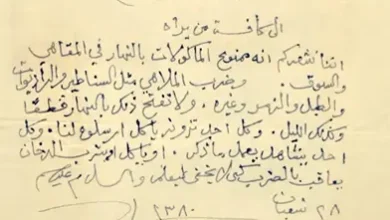 الى كافة من يراه
اننا نشعركم انه ممنوع الماكولات بالنهار في المقاهي
والسوق . وضرب الملاهي مثل السناطير والراديوات
والطبل والزمر وغيره . ولا تفتح ذلك بالنهار قطعا
وكذلك الليل . وكل احد تزونه ياكل ارسلوه لنا . وكل
احد يتساهل يعمل ما ذكر . او ياكل او يشرب الدخان
يعاقب بالضرب لكي لا يخفى ليعلم والسلام عليكم
٢٨ شعبان ١٣٨٠